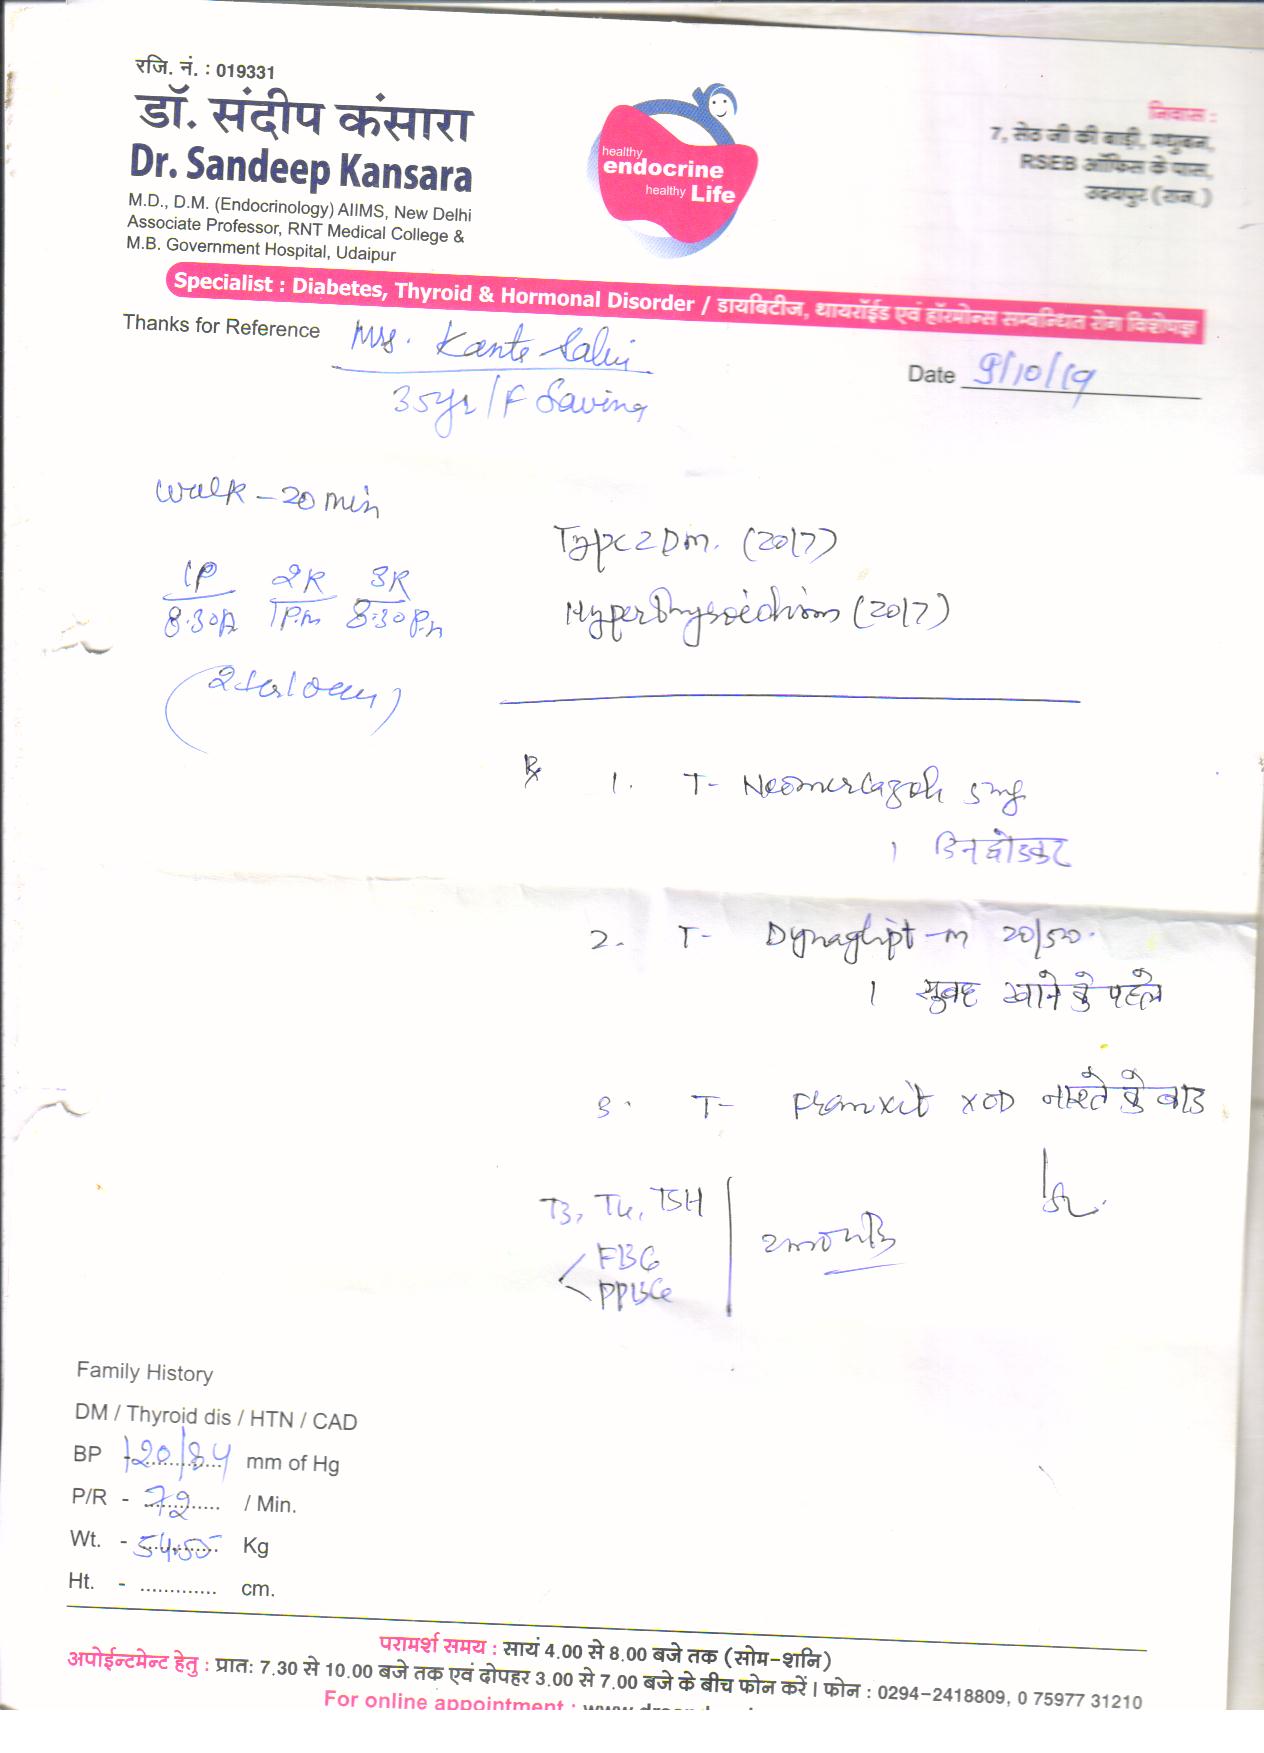 रजि. नं. : 019331
डॉ. संदीप कंसारा
Dr. Sandeep Kansara
M.D., D.M. (Endocrinology) AIIMS, New Delhi
Associate Professor, RNT Medical College &
M.B. Government Hospital, Udaipur
healthy
endocrine
healthy Life
निवास :
7, सेठ जी की बाड़ी, मधुबन,
RSEB ऑफिस के पास,
उदयपुर (राज.)
Specialist : Diabetes, Thyroid & Hormonal Disorder / डायबिटीज, थायरॉईड एवं हॉरमोन्स सम्बन्धित रोग विशेषज्ञ
Thanks for Reference Mrs. Kante
35yr/F
Date 9/10/19
Walk - 20 min
1P 2R 3R
8.30A 1P.m 8.30P.m
Type 2 Dm. (2017)
Hyperthyroidism (2017)
Rx 1. T- Neomercazole 5mg
1 दिन छोडकर
2. T- Dynaglipt-m 20/500.
1 सुबह खाने के पहले
3. T- XOD नाश्ते के बाद
T3, T4, TSH
FBG
PPBG
2 month
Family History
DM / Thyroid dis / HTN / CAD
BP - 120/84 mm of Hg
P/R - 72 / Min.
Wt. - 54.55 Kg
Ht. - ............. cm.
परामर्श समय : सायं 4.00 से 8.00 बजे तक (सोम-शनि)
अपोईन्टमेन्ट हेतु : प्रात: 7.30 से 10.00 बजे तक एवं दोपहर 3.00 से 7.00 बजे के बीच फोन करें। फोन : 0294-2418809, 0 75977 31210
For online appointment :